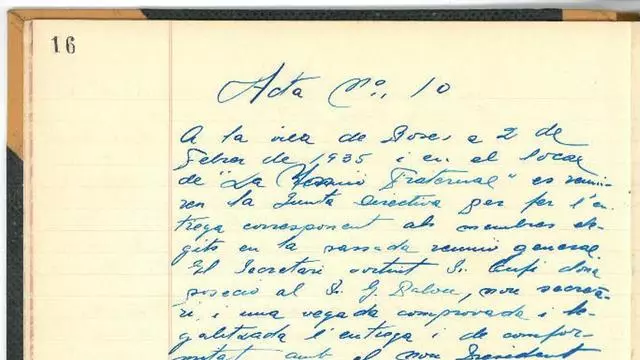 16
Acta Nº, 10
A la vila de Roses a 2 de
Febrer de 1935 i en el local
de "La Unió Fraternal" es reuni-
ren la Junta Directiva per fer l'en-
trega corresponent als membres ele-
gits en la passada reunió general.
El Secretari sortint Sr. dona
posesió al Sr. G. nou secreta-
ri, i una vegada comprovada i le-
galitzada l'entrega i de confor-
mitat amb el nou President